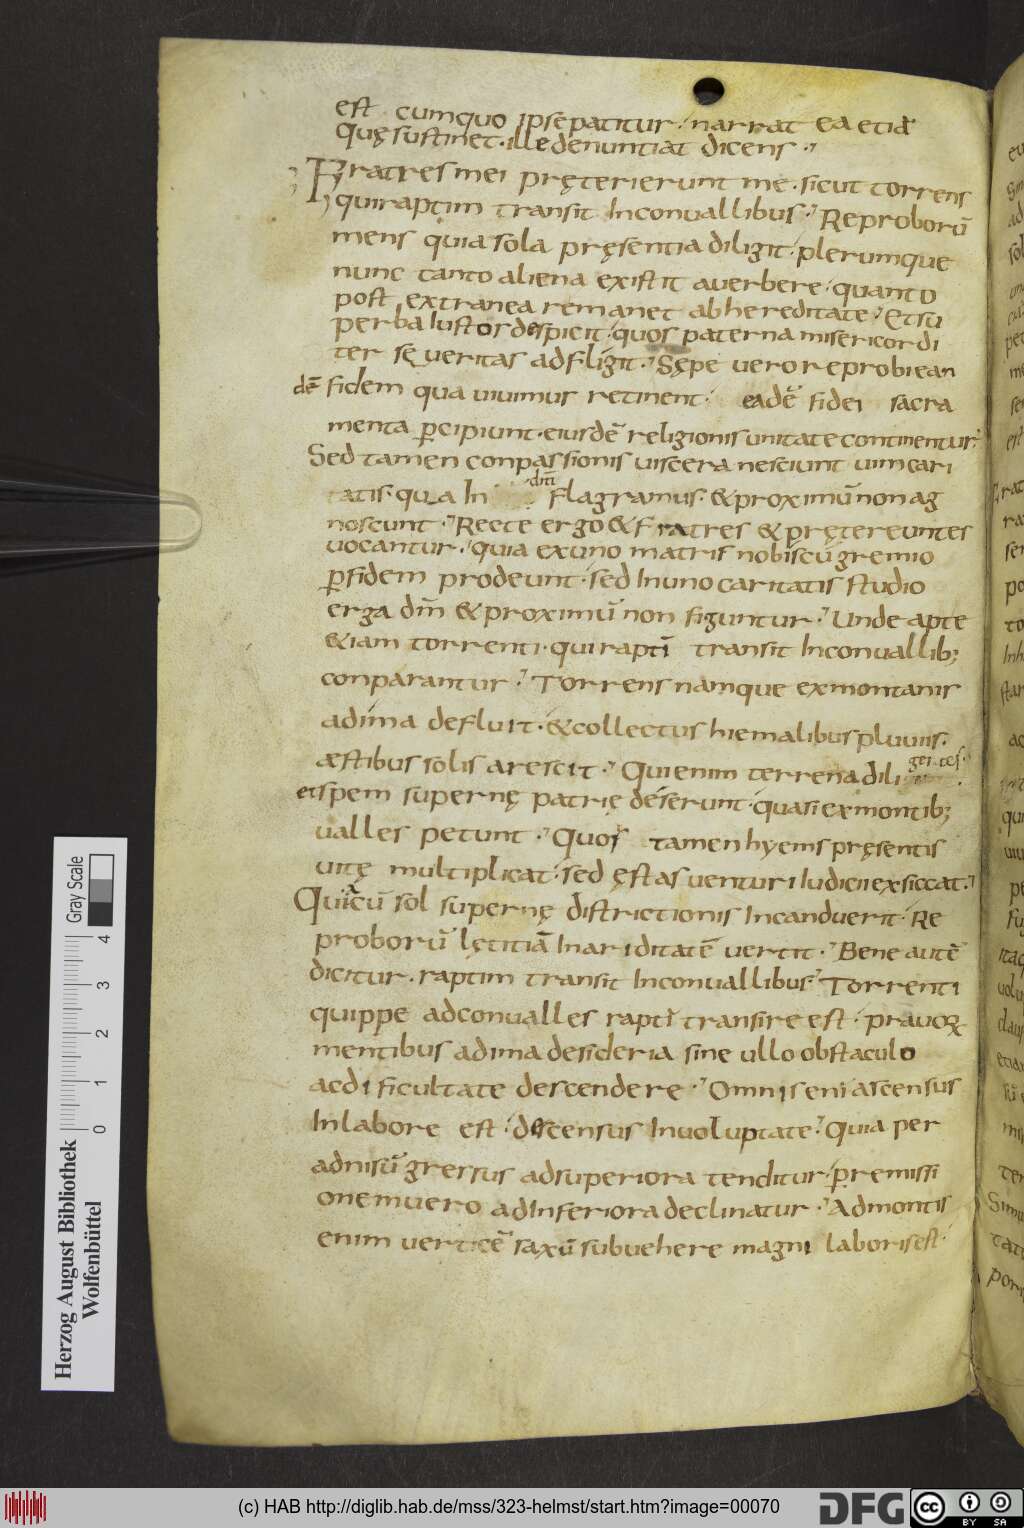 est cumquo ipse patitur. narrat ea etiā
quę sustinet. ille denuntiat dicens.
Fratres mei pręterierunt me. sicut torrens
qui raptim transit Inconuallibus. Reproborū
mens quia sola pręsentia diligit. plerumque
nunc tanto aliena existit auerbere. quanto
post extranea remanet ab hereditate. Et su
perba iustos despicit. quos paterna misericordi
ter sę ueritas adfligit. Sępe uero reprobi ean
dē fidem qua uiuimus retinent. eadē fidei sacra
menta ꝑcipiunt. eiusdē religionis unitate continentur.
Sed tamen conpassionis uiscera nesciunt uim cari
tatis. qua In dm̄ flagramus. & proximū non ag
noscunt. Recte ergo & fratres & prętereuntes
uocantur. quia ex uno matris nobiscū gremio
ꝑ fidem prodeunt. sed In uno caritatis studio
erga dm̄ & proximū non figuntur. Unde apte
& iam torrenti. qui raptī transit Inconuallib;
conparantur. Torrens namque ex montanis
ad ima defluit. & collectus hiemalibus pluuiis.
æstibus solis arescit. Qui enim terrena dili gentes.
et spem supernę patrię deserunt. quasi ex montib;
ualles petunt. Quos tamen hyems pręsentis
uitę multiplicat. sed ęstas uenturi Iudicii exsiccat.
Qui cū sol supernę districtionis Incanduerit. Re
proborū lętitiā In ariditatē uertit. Bene autē
dicitur. raptim transit Inconuallibus. Torrenti
quippe ad conualles raptī transire est. prauoꝝ
mentibus ad ima desideria sine ullo obstaculo
ac dificultate descendere. Omnis enī ascensus
In labore est. descensus In uoluptate. Quia per
adnisū gressus ad superiora tenditur. ꝑ remissi
onem uero ad Inferiora declinatur. Ad montis
enim uerticē saxū subuehere magni laboris est.
Herzog August Bibliothek
Wolfenbüttel
0 1 2 3 4
Gray Scale
(c) HAB http://diglib.hab.de/mss/323-helmst/start.htm?image=00070
DFG
cc BY SA